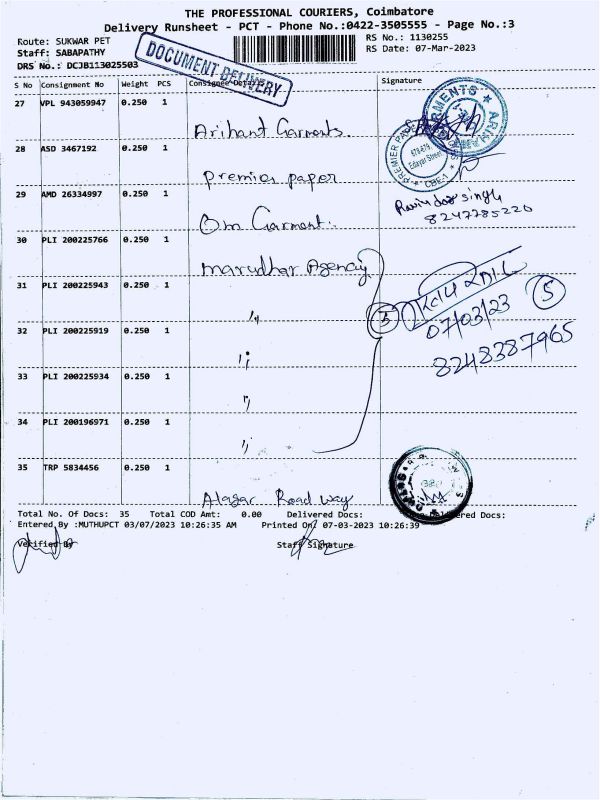 THE PROFESSIONAL COURIERS, Coimbatore
Delivery Runsheet - PCT - Phone No.:0422-3505555 - Page No.:3
Route: SUKWAR PET
Staff: SABAPATHY
DRS No.: DCJB113025503
RS No.: 1130255
RS Date: 07-Mar-2023
DOCUMENT DELIVERY
S No Consignment No Weight PCS Consignee Details Signature
27 VPL 943059947 0.250 1
Arihant Garments.
28 ASD 3467192 0.250 1
premier paper
29 AMD 26334997 0.250 1
Om Garment.
8247785220
30 PLI 200225766 0.250 1
marudhar Agency
31 PLI 200225943 0.250 1
5
07/03/23
5
8248387965
32 PLI 200225919 0.250 1
33 PLI 200225934 0.250 1
34 PLI 200196971 0.250 1
35 TRP 5834456 0.250 1
Alagar Road way
Total No. Of Docs: 35 Total COD Amt: 0.00 Delivered Docs: Delivered Docs:
Entered By :MUTHUPCT 03/07/2023 10:26:35 AM Printed On: 07-03-2023 10:26:39
Verified By Staff Signature